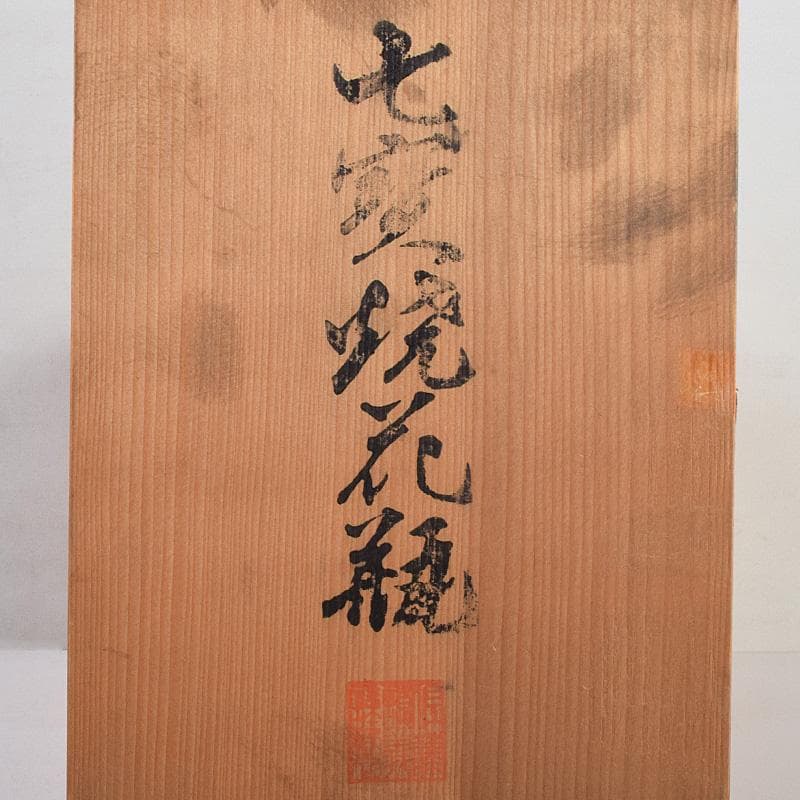 七寶焼花瓶